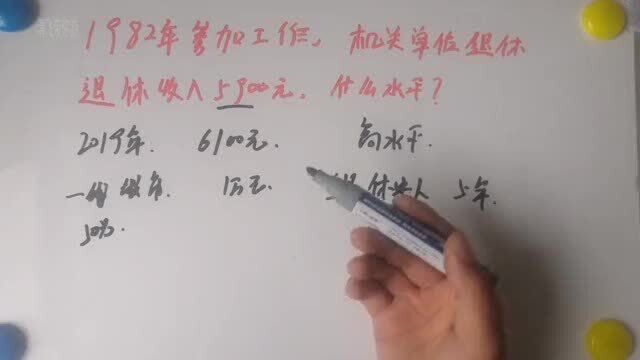 1982年参加工作，机关单位退休
退休收入5900元，什么水平？
2019年. 6100元. 高水平.
一线城市. 1万元. 退休收入 5年.
50%.